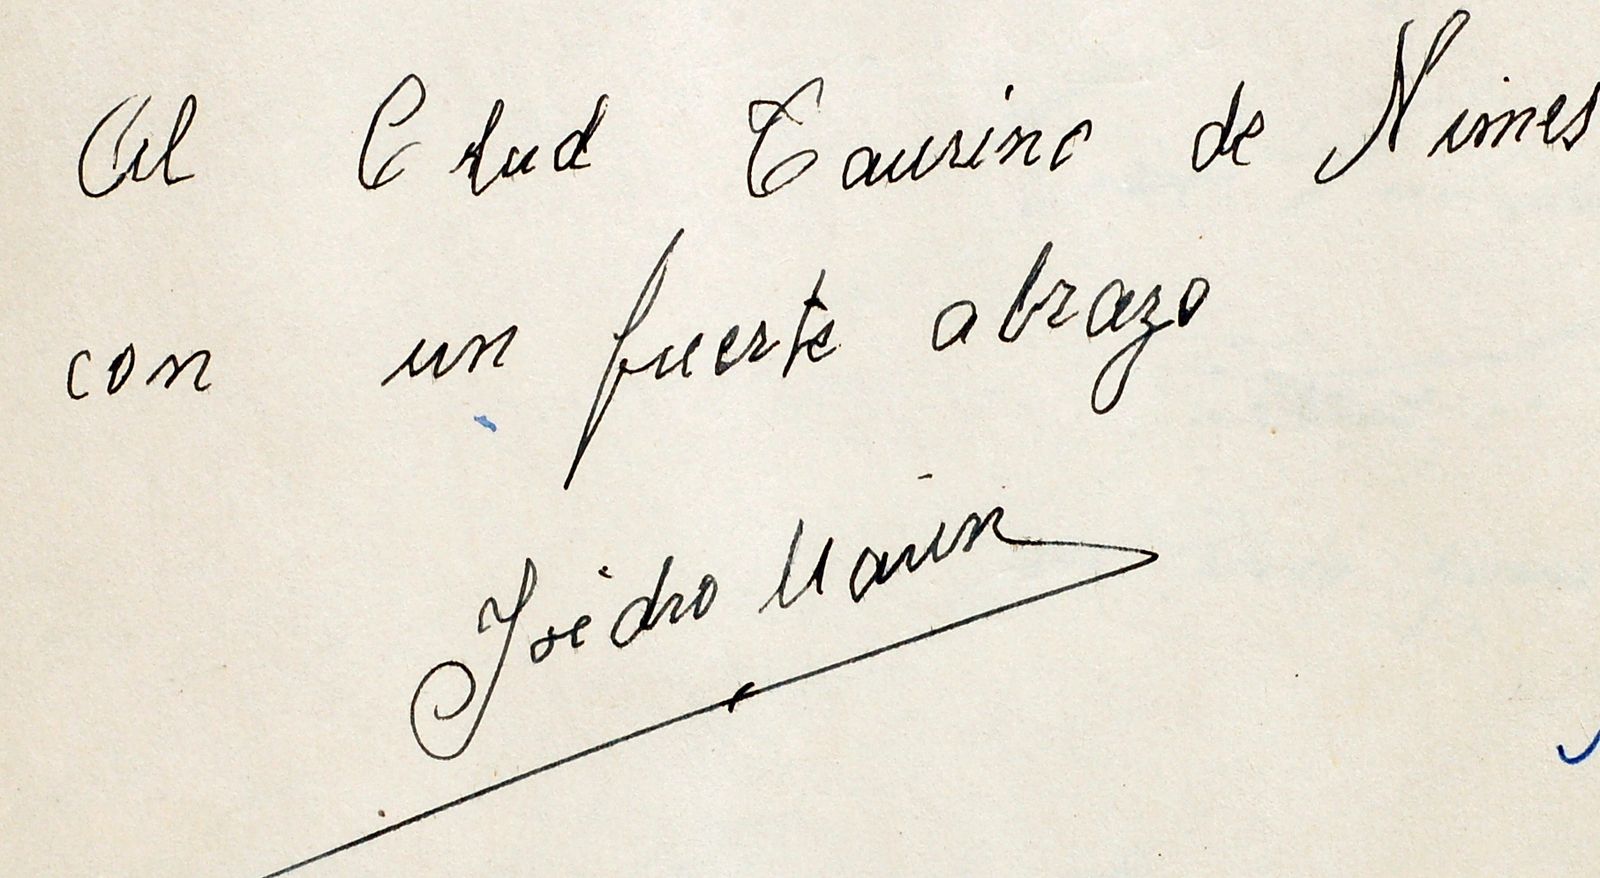 Al Clud Taurino de Nimes
con un fuerte abrazo
Isidro Marin